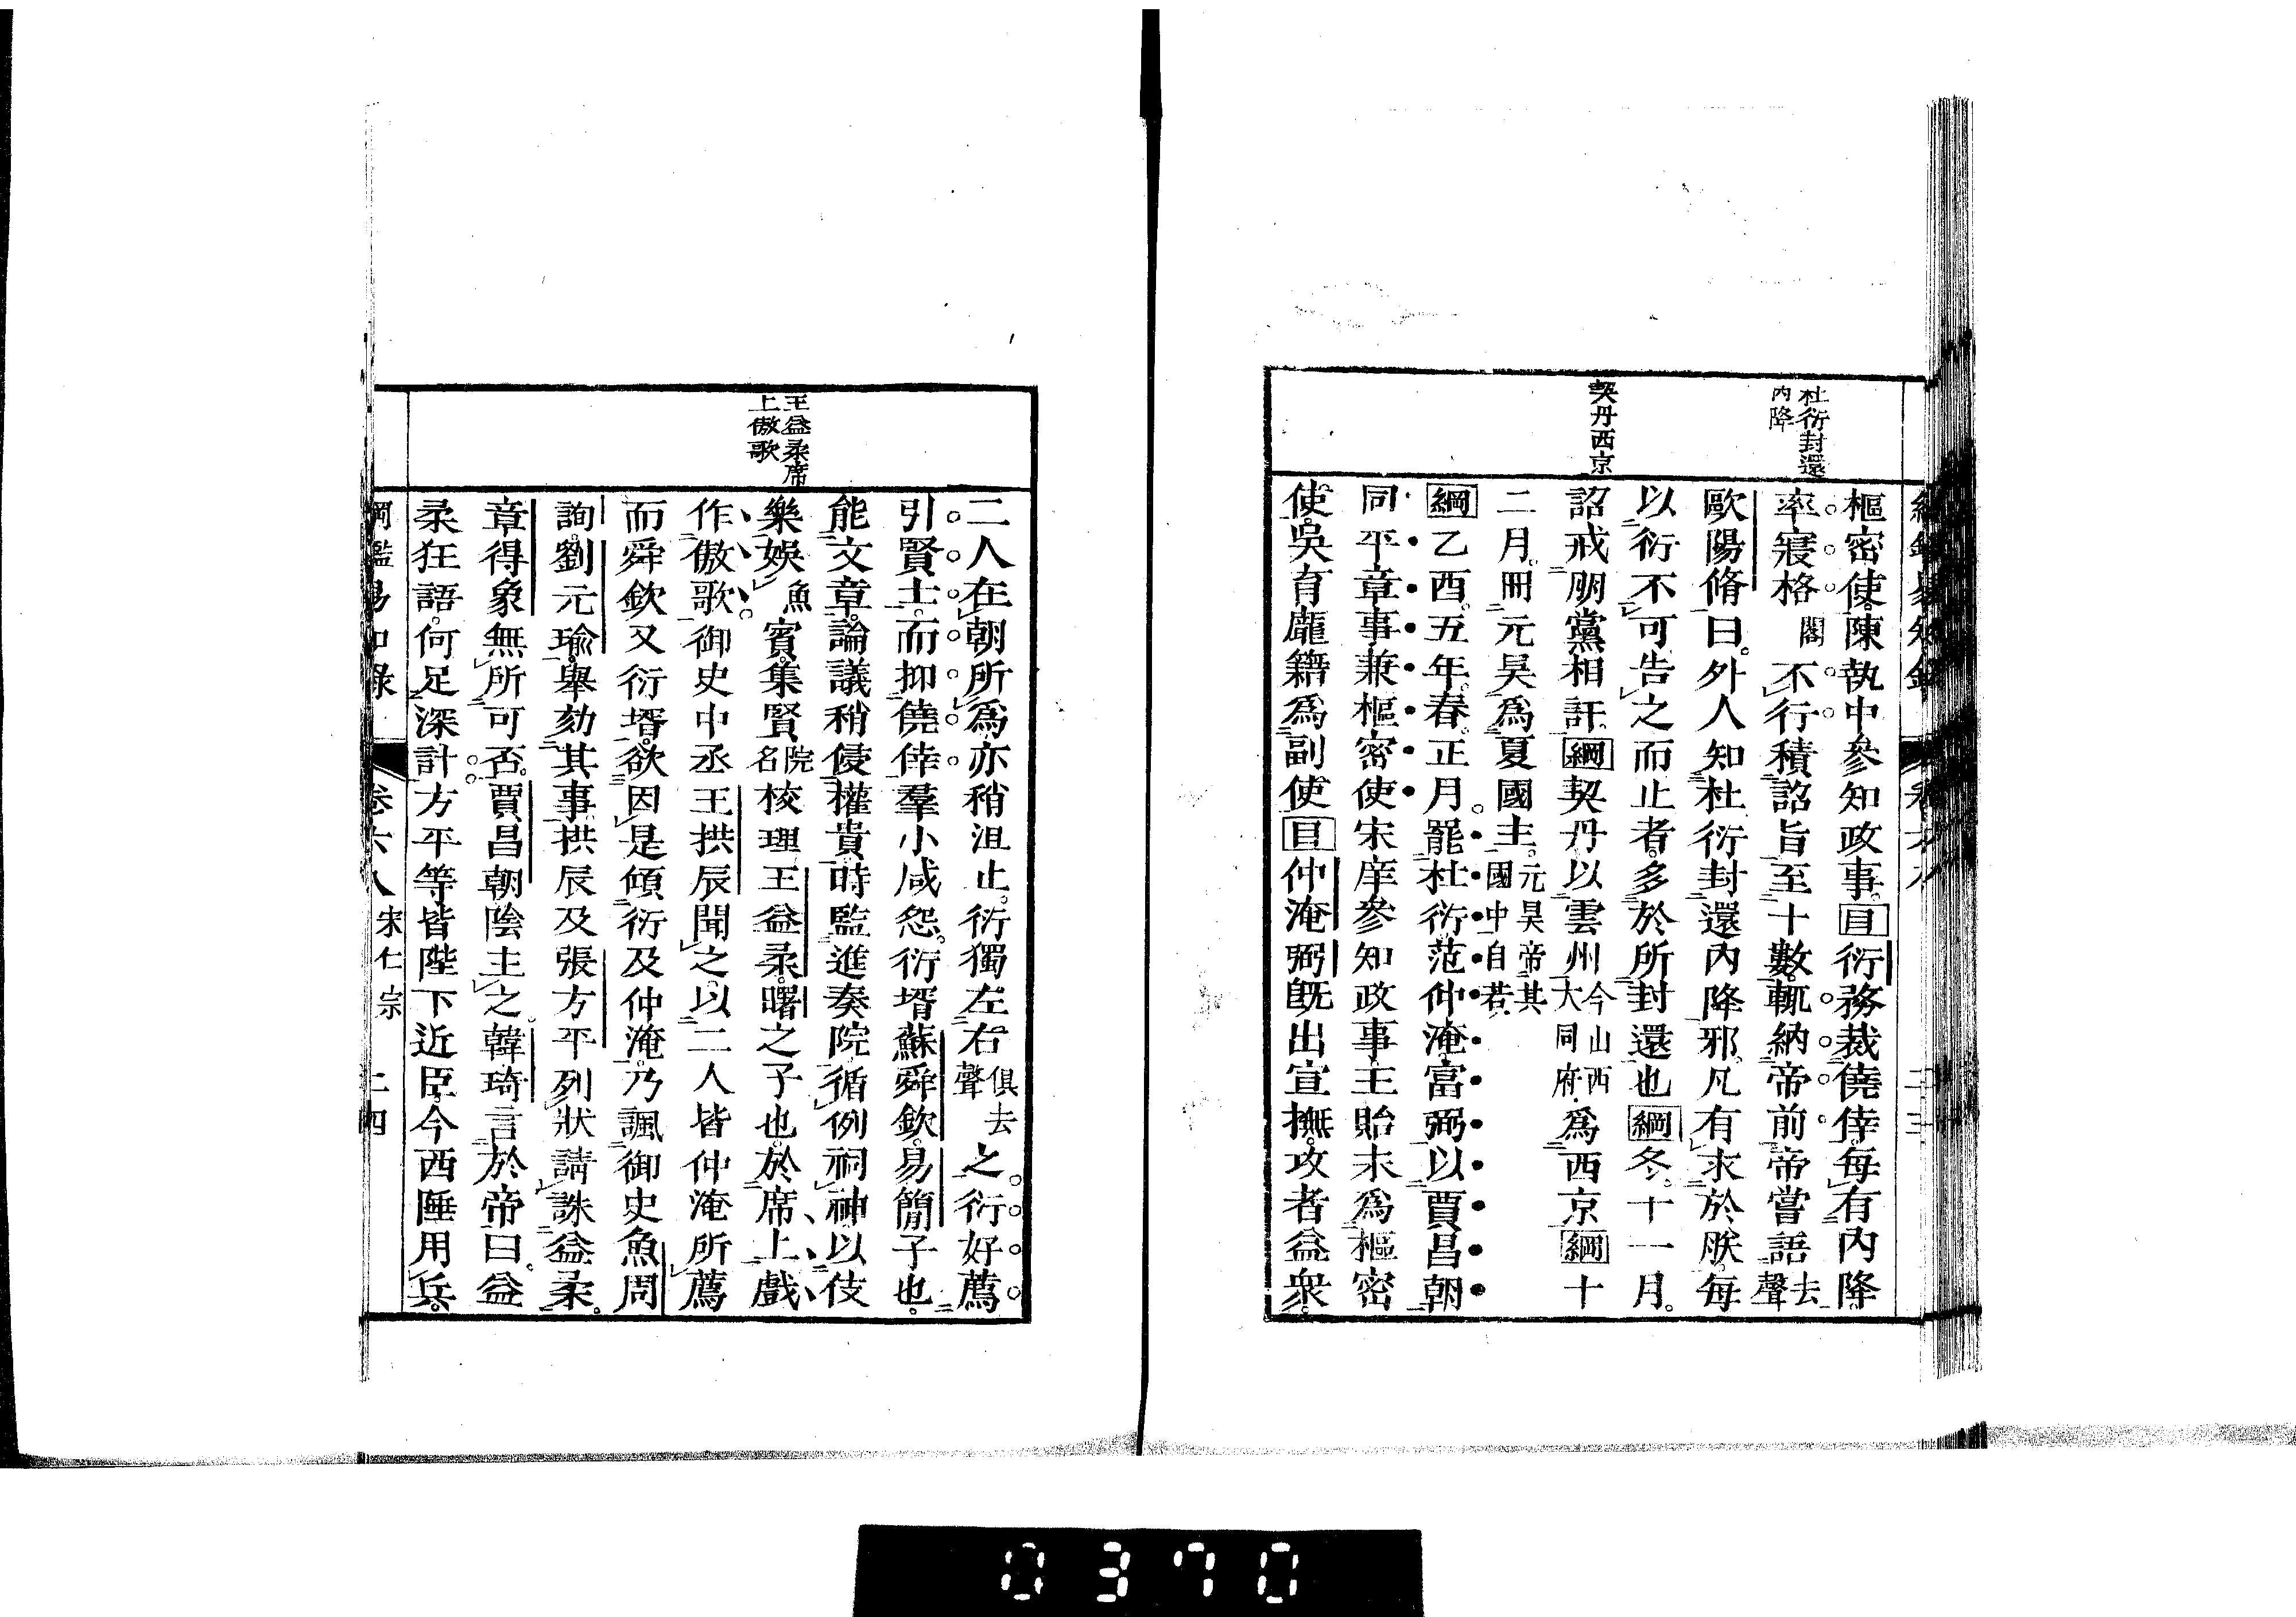 杜衍封還
內降
契丹西京
樞密使陳執中參知政事目衍務裁僥倖每有內降
率寢格閣不行積詔旨至十數輒納帝前帝嘗語去聲
歐陽脩曰外人知杜衍封還內降邪凡有求於朕每
以衍不可告之而止者多於所封還也綱冬十一月
詔戒朋黨相訐綱契丹以雲州今山西大同府爲西京綱十
二月冊元昊爲夏國主元昊帝其國中自若
綱乙酉五年春正月罷杜衍范仲淹富弼以賈昌朝
同平章事兼樞密使宋庠參知政事王貽永爲樞密
使吳育龐籍爲副使目仲淹弼旣出宣撫攻者益衆
王益柔席
上傲歌
二人在朝所爲亦稍沮止衍獨左右俱去聲之衍好薦
引賢士而抑僥倖羣小咸怨衍壻蘇舜欽易簡子也
能文章論議稍侵權貴時監進奏院循例祠神以伎
樂娛魚賓集賢院名校理王益柔曙之子也於席上戲
作傲歌御史中丞王拱辰聞之以二人皆仲淹所薦
而舜欽又衍壻欲因是傾衍及仲淹乃諷御史魚周
詢劉元瑜舉劾其事拱辰及張方平列狀請誅益柔
章得象無所可否賈昌朝陰主之韓琦言於帝曰益
柔狂語何足深計方平等皆陛下近臣今西陲用兵
綱鑑易知錄 卷六八 宋仁宗 二四
0370